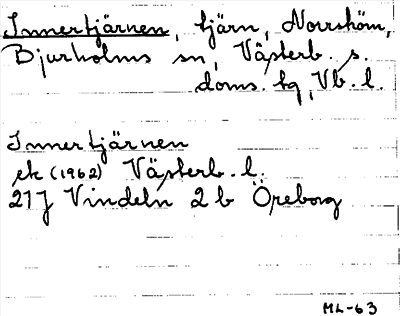 Innertjärnen, tjärn, Norrshöm,
Bjurholms sn, Västerb. s.
doms. tg, Vb. l.
Innertjärnen
ek (1962) Västerb. l.
21J Vindeln 2b Öreborg
ML-63